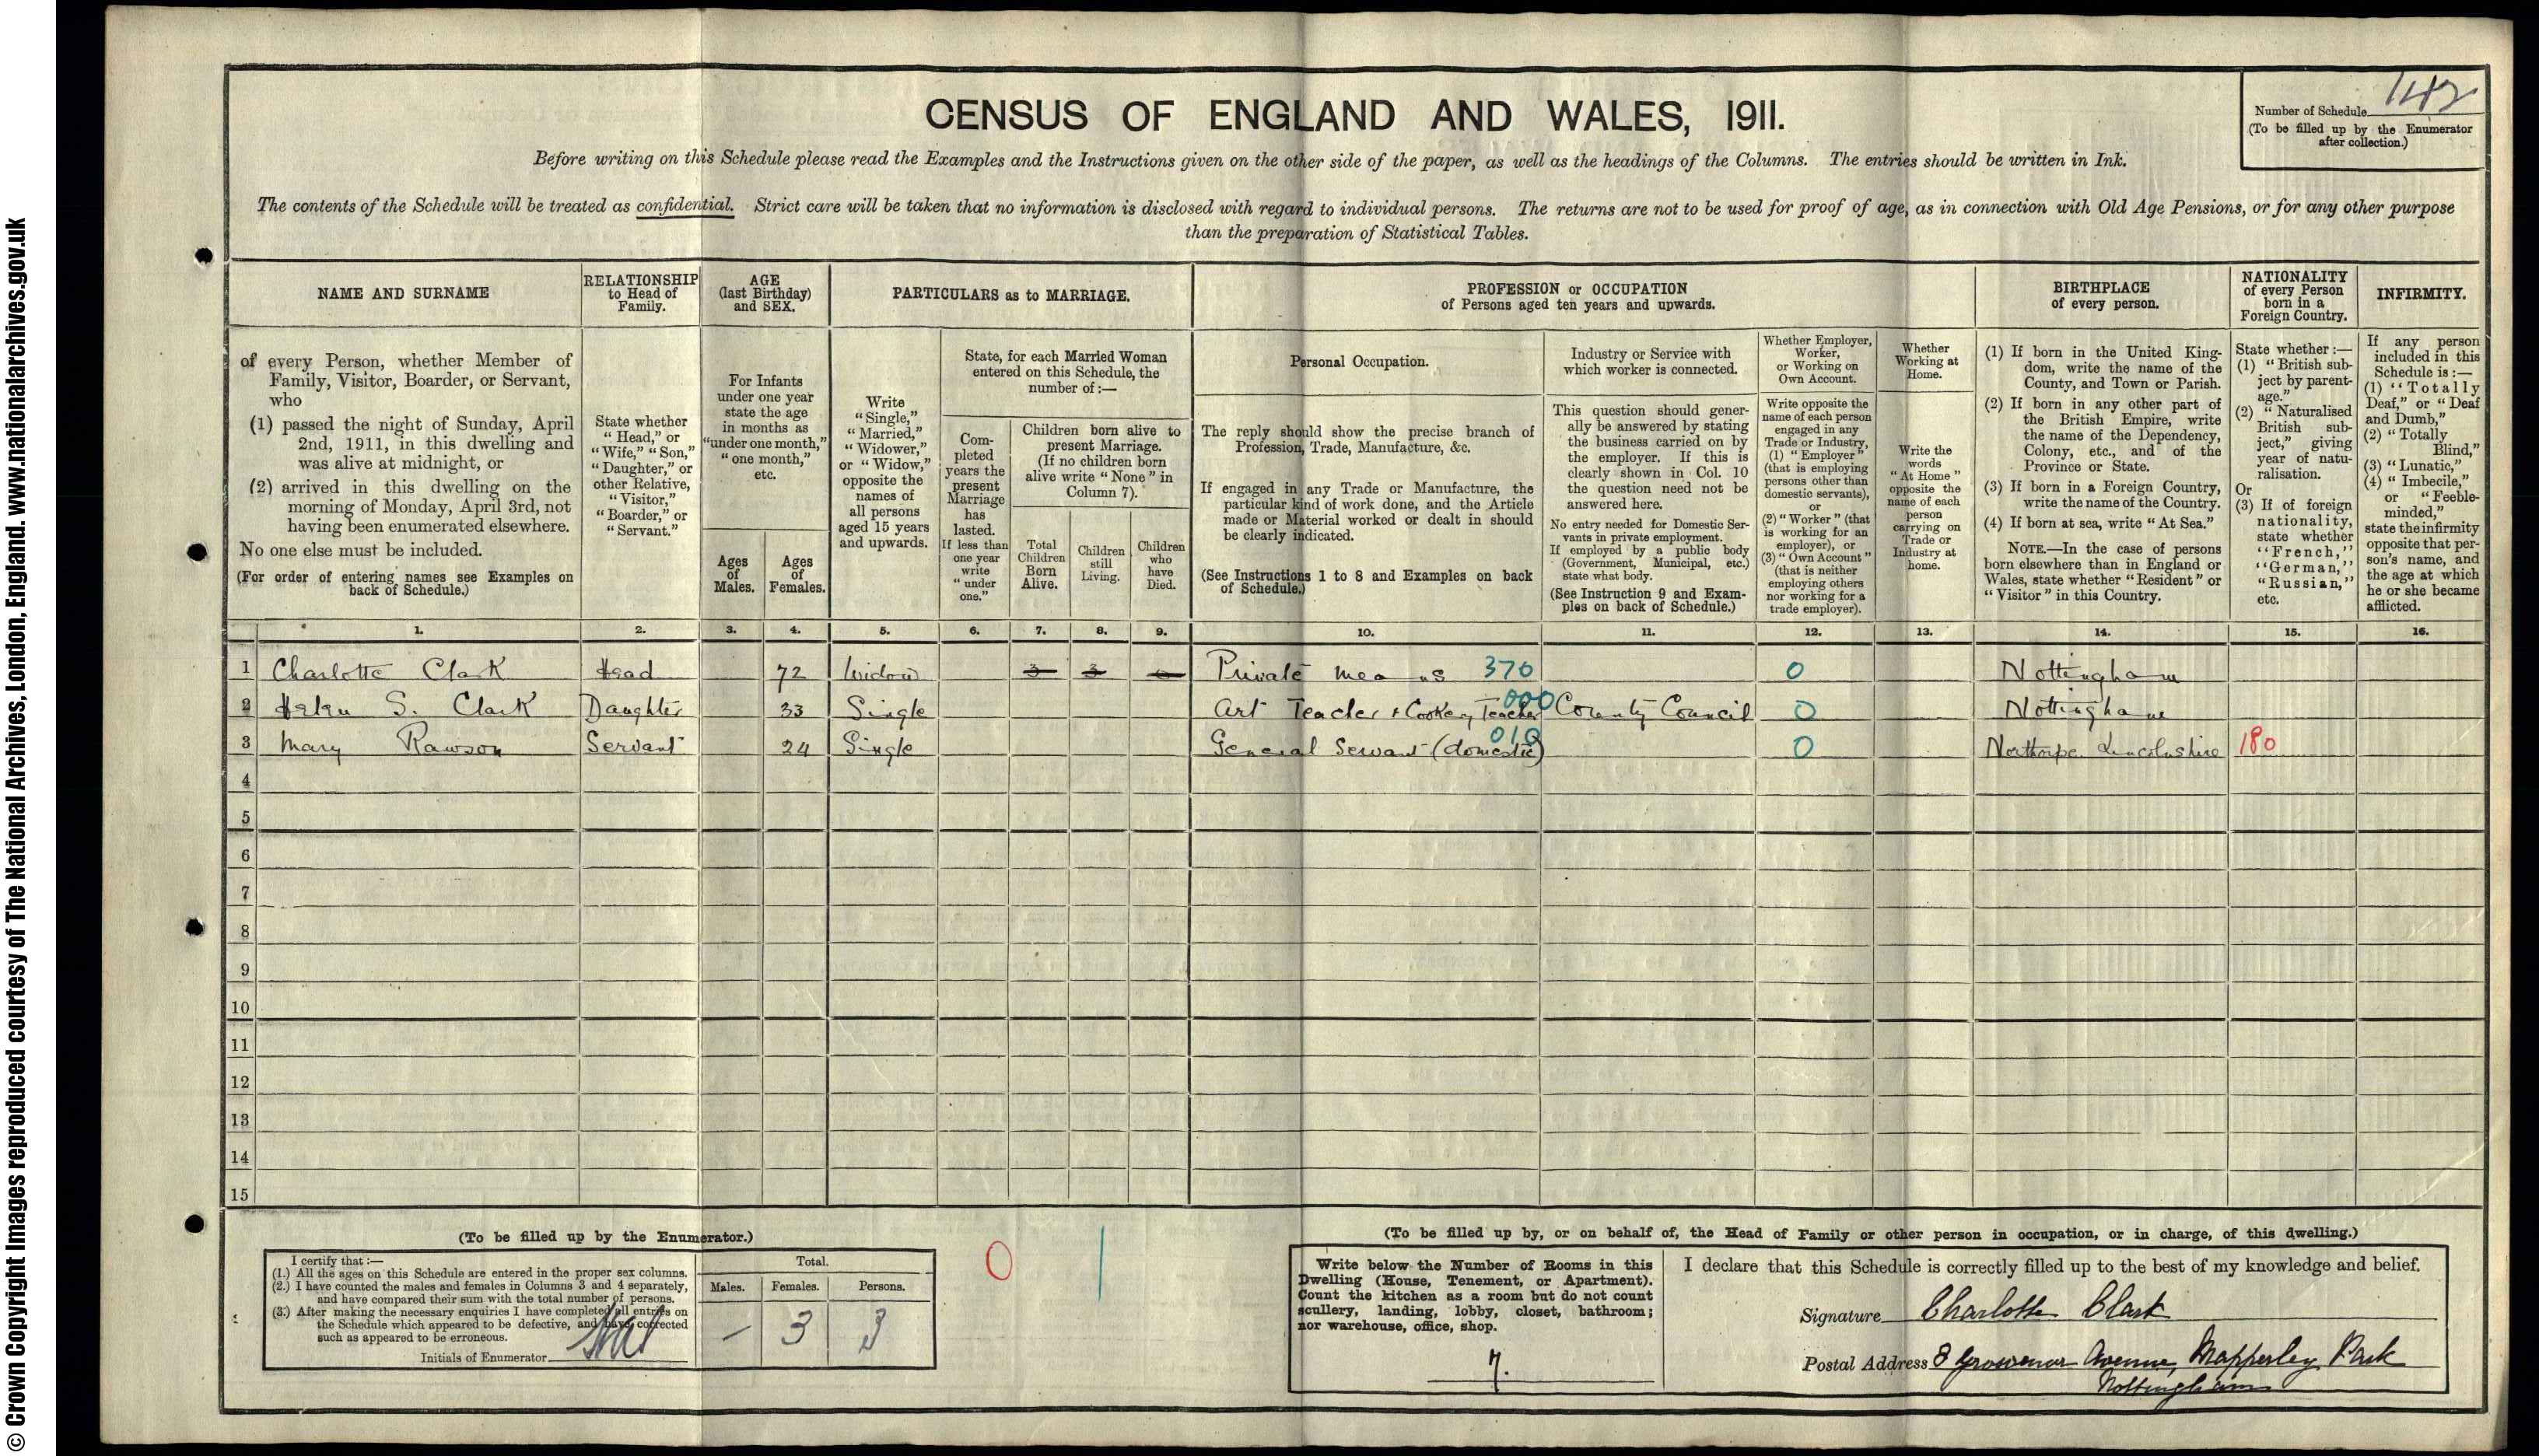 © Crown Copyright Images reproduced courtesy of The National Archives, London, England. www.nationalarchives.gov.uk
CENSUS OF ENGLAND AND WALES, 1911.
Number of Schedule
(To be filled up by the Enumerator
after collection.)
Before writing on this Schedule please read the Examples and the Instructions given on the other side of the paper, as well as the headings of the Columns. The entries should be written in Ink.
The contents of the Schedule will be treated as confidential. Strict care will be taken that no information is disclosed with regard to individual persons. The returns are not to be used for proof of age, as in connection with Old Age Pensions, or for any other purpose
than the preparation of Statistical Tables.
NAME AND SURNAME
of every Person, whether Member of
Family, Visitor, Boarder, or Servant,
who
(1) passed the night of Sunday, April
2nd, 1911, in this dwelling and
was alive at midnight, or
(2) arrived in this dwelling on the
morning of Monday, April 3rd, not
having been enumerated elsewhere.
No one else must be included.
(For order of entering names see Examples on
back of Schedule.)
RELATIONSHIP
to Head of
Family.
State whether
"Head," or
"Wife," "Son,"
"Daughter," or
other Relative,
"Visitor,"
"Boarder," or
"Servant."
AGE
(last Birthday)
and SEX.
For Infants
under one year
state the age
in months as
"under one month,"
"one month,"
etc.
Ages
of
Males.
Ages
of
Females.
PARTICULARS as to MARRIAGE.
Write
"Single,"
"Married,"
"Widower,"
or "Widow,"
opposite the
names of
all persons
aged 15 years
and upwards.
State, for each Married Woman
entered on this Schedule, the
number of :—
Com-
pleted
years the
present
Marriage
has
lasted.
If less than
one year
write
"under
one."
Children born alive to
present Marriage.
(If no children born
alive write "None" in
Column 7).
Total
Children
Born
Alive.
Children
still
Living.
Children
who
have
Died.
PROFESSION or OCCUPATION
of Persons aged ten years and upwards.
Personal Occupation.
The reply should show the precise branch of
Profession, Trade, Manufacture, &c.
If engaged in any Trade or Manufacture, the
particular kind of work done, and the Article
made or Material worked or dealt in should
be clearly indicated.
(See Instructions 1 to 8 and Examples on back
of Schedule.)
Industry or Service with
which worker is connected.
This question should gener-
ally be answered by stating
the business carried on by
the employer. If this is
clearly shown in Col. 10
the question need not be
answered here.
No entry needed for Domestic Ser-
vants in private employment.
If employed by a public body
(Government, Municipal, etc.)
state what body.
(See Instruction 9 and Exam-
ples on back of Schedule.)
Whether Employer,
Worker,
or Working on
Own Account.
Write opposite the
name of each person
engaged in any
Trade or Industry,
(1) "Employer"
(that is employing
persons other than
domestic servants),
or
(2) "Worker" (that
is working for an
employer), or
(3) "Own Account"
(that is neither
employing others
nor working for a
trade employer).
Whether
Working at
Home.
Write the
words
"At Home"
opposite the
name of each
person
carrying on
Trade or
Industry at
home.
BIRTHPLACE
of every person.
(1) If born in the United King-
dom, write the name of the
County, and Town or Parish.
(2) If born in any other part of
the British Empire, write
the name of the Dependency,
Colony, etc., and of the
Province or State.
(3) If born in a Foreign Country,
write the name of the Country.
(4) If born at sea, write "At Sea."
NOTE.—In the case of persons
born elsewhere than in England or
Wales, state whether "Resident" or
"Visitor" in this Country.
NATIONALITY
of every Person
born in a
Foreign Country.
State whether :—
(1) "British sub-
ject by parent-
age."
(2) "Naturalised
British sub-
ject," giving
year of natu-
ralisation.
Or
(3) If of foreign
nationality,
state whether
"French,"
"German,"
"Russian,"
etc.
INFIRMITY.
If any person
included in this
Schedule is :—
(1) "Totally
Deaf," or "Deaf
and Dumb,"
(2) "Totally
Blind,"
(3) "Lunatic,"
(4) "Imbecile,"
or "Feeble-
minded,"
state the infirmity
opposite that per-
son's name, and
the age at which
he or she became
afflicted.
1. 2. 3. 4. 5. 6. 7. 8. 9. 10. 11. 12. 13. 14. 15. 16.
1 Charlotte Clark Head 72 Widow 3 3 Private means 370 0 Nottingham
2 Helen S. Clark Daughter 33 Single Art Teacher + Cookery Teacher 000 County Council 0 Nottingham
3 Mary Rawson Servant 24 Single General Servant (domestic) 010 0 Northorpe Lincolnshire 180
4
5
6
7
8
9
10
11
12
13
14
15
(To be filled up by the Enumerator.)
I certify that :—
(1.) All the ages on this Schedule are entered in the proper sex columns.
(2.) I have counted the males and females in Columns 3 and 4 separately,
and have compared their sum with the total number of persons.
(3.) After making the necessary enquiries I have completed all entries on
the Schedule which appeared to be defective, and have corrected
such as appeared to be erroneous.
Initials of Enumerator
Total.
Males. Females. Persons.
— 3 3
0 1
(To be filled up by, or on behalf of, the Head of Family or other person in occupation, or in charge, of this dwelling.)
Write below the Number of Rooms in this
Dwelling (House, Tenement, or Apartment).
Count the kitchen as a room but do not count
scullery, landing, lobby, closet, bathroom;
nor warehouse, office, shop.
7.
I declare that this Schedule is correctly filled up to the best of my knowledge and belief.
Signature Charlotte Clark
Postal Address 8 Grosvenor Avenue, Mapperley Park
Nottingham